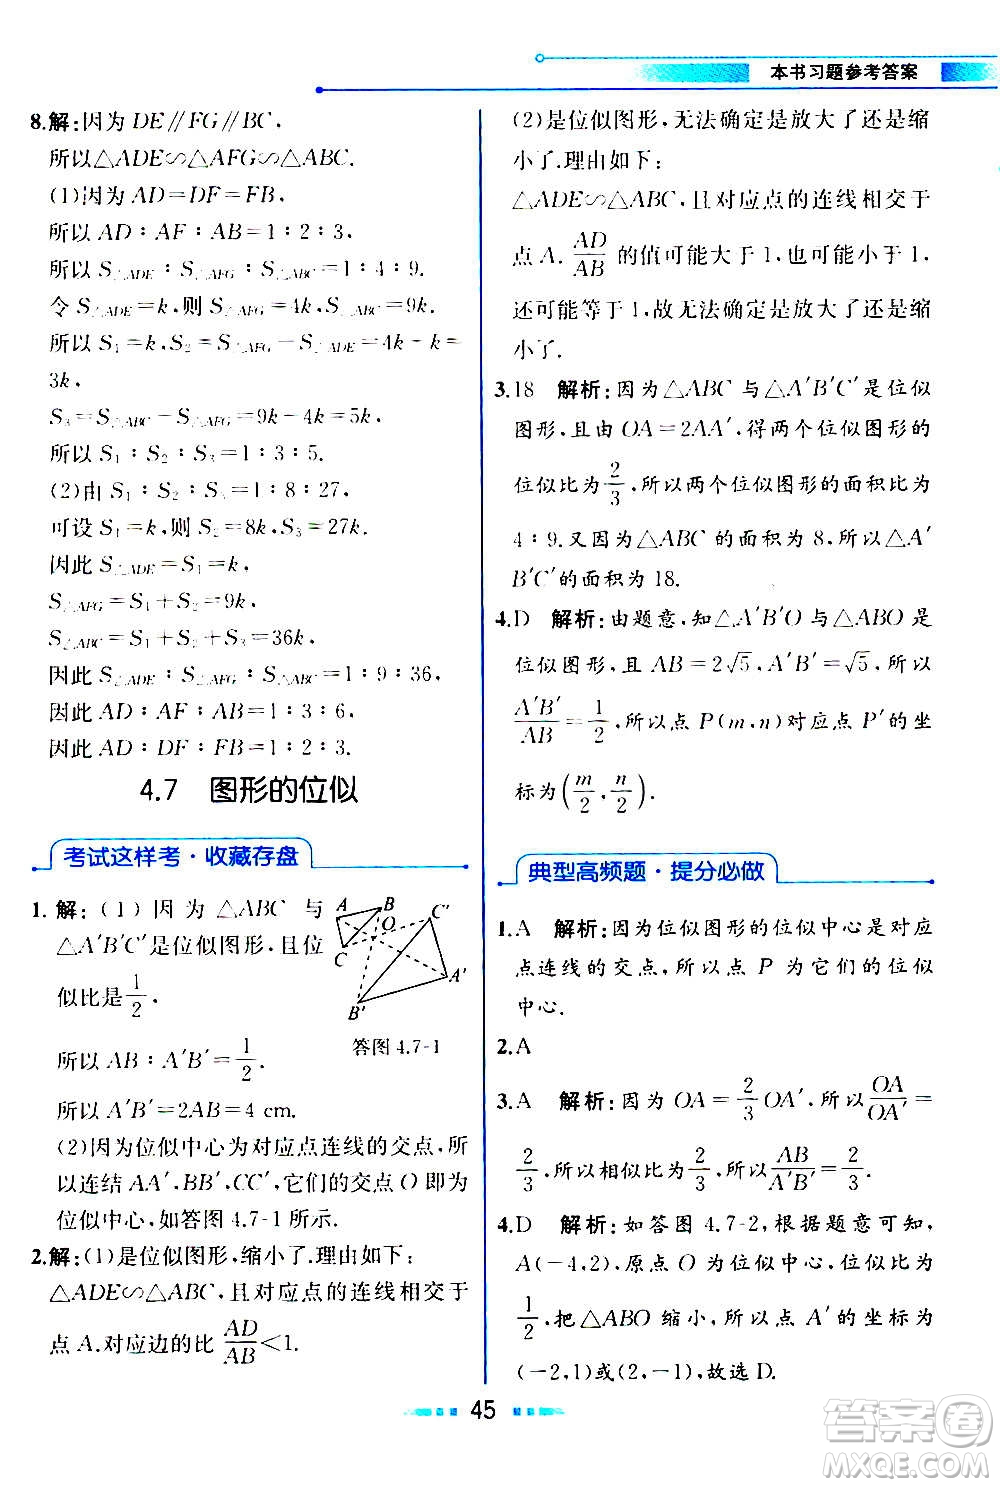 本书习题参考答案
8.解:因为 DE∥FG∥BC,
所以△ADE∽△AFG∽△ABC.
(1)因为 AD=DF=FB,
所以 AD∶AF∶AB=1∶2∶3.
所以 S△ADE∶S△AFG∶S△ABC=1∶4∶9.
令 S△ADE=k,则 S△AFG=4k,S△ABC=9k.
所以 S₁=k,S₂=S△AFG-S△ADE=4k-k=
3k,
S₃=S△ABC-S△AFG=9k-4k=5k.
所以 S₁∶S₂∶S₃=1∶3∶5.
(2)由 S₁∶S₂∶S₃=1∶8∶27,
可设 S₁=k,则 S₂=8k,S₃=27k.
因此 S△ADE=S₁=k,
S△AFG=S₁+S₂=9k,
S△ABC=S₁+S₂+S₃=36k.
因此 S△ADE∶S△AFG∶S△ABC=1∶9∶36,
因此 AD∶AF∶AB=1∶3∶6.
因此 AD∶DF∶FB=1∶2∶3.
4.7 图形的位似
考试这样考·收藏存盘
1.解:(1)因为△ABC 与
△A′B′C′是位似图形,且位
似比是1/2,
所以 AB∶A′B′=1/2.
所以 A′B′=2AB=4 cm.
A B C″ O C A′ B′
答图 4.7-1
(2)因为位似中心为对应点连线的交点,所
以连结 AA′,BB′,CC′,它们的交点 O 即为
位似中心,如答图 4.7-1 所示.
2.解:(1)是位似图形,缩小了.理由如下:
△ADE∽△ABC,且对应点的连线相交于
点 A.对应边的比 AD/AB<1.
(2)是位似图形,无法确定是放大了还是缩
小了.理由如下:
△ADE∽△ABC,且对应点的连线相交于
点 A. AD/AB 的值可能大于 1,可能小于 1,
还可能等于 1,故无法确定是放大了还是缩
小了.
3.18 解析:因为△ABC 与△A′B′C′是位似
图形,且由 OA=2AA′,得两个位似图形的
位似比为2/3,所以两个位似图形的面积比为
4∶9.又因为△ABC 的面积为 8,所以△A′
B′C′的面积为 18.
4.D 解析:由题意,知△A′B′O 与△ABO 是
位似图形,且 AB=2√5,A′B′=√5,所以
A′B′/AB=1/2,所以点 P(m,n)对应点 P′的坐
标为(m/2,n/2).
典型高频题·提分必做
1.A 解析:因为位似图形的位似中心是对应
点连线的交点,所以点 P 为它们的位似
中心.
2.A
3.A 解析:因为 OA=2/3OA′,所以OA/OA′=
2/3,所以相似比为2/3,AB/A′B′=2/3.
4.D 解析:如答图 4.7-2,根据题意可知,
A(-4,2),原点 O 为位似中心,位似比为
1/2,把△ABO 缩小,所以点 A′的坐标为
(-2,1)或(2,-1),故选 D.
45
答案卷
MXQE.COM